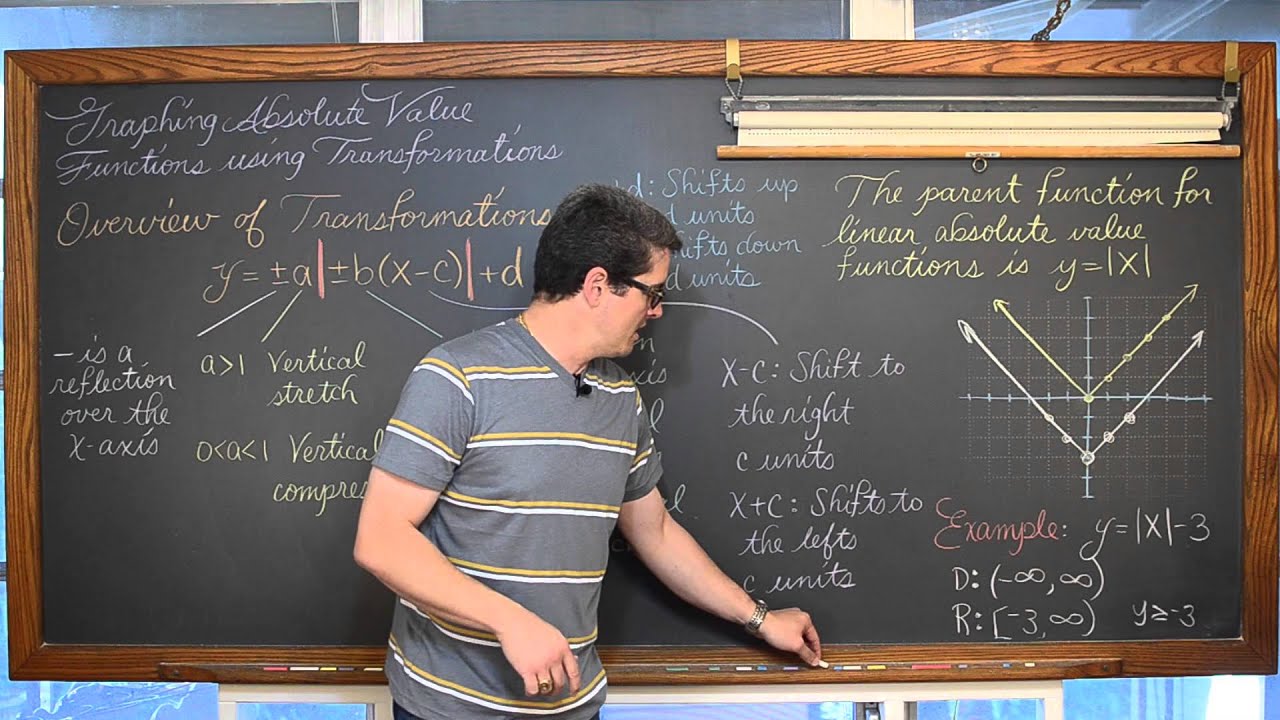 Graphing Absolute Value
Functions using Transformations
Overview of Transformations
y=±a|±b(x-c)|+d
- is a
reflection
over the
x-axis
a>1 Vertical
stretch
0<a<1 Vertical
d: Shifts up
d units
down
d units
x-c: Shift to
the right
c units
x+c: Shifts to
the lefts
c units
The parent function for
linear absolute value
functions is y=|x|
Example: y=|x|-3
D: (-∞,∞)
R: [-3,∞) y≥-3